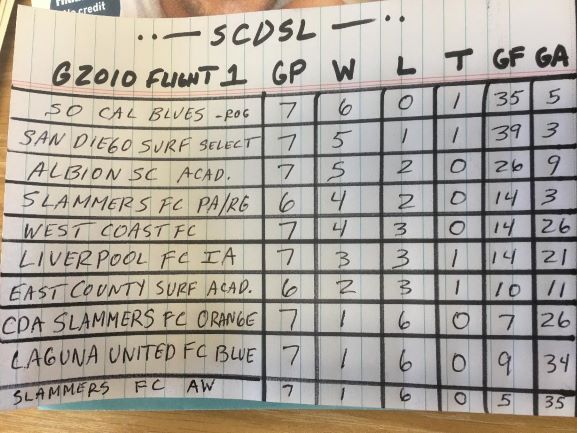 credit
SCDSL
G2010 FLIGHT 1 GP W L T GF GA
SO CAL BLUES -ROG 7 6 0 1 35 5
SAN DIEGO SURF SELECT 7 5 1 1 39 3
ALBION SC ACAD. 7 5 2 0 26 9
SLAMMERS FC PA/RG 6 4 2 0 14 3
WEST COAST FC 7 4 3 0 14 26
LIVERPOOL FC IA 7 3 3 1 14 21
EAST COUNTY SURF ACAD. 6 2 3 1 10 11
CDA SLAMMERS FC ORANGE 7 1 6 0 7 26
LAGUNA UNITED FC BLUE 7 1 6 0 9 34
SLAMMERS FC AW 7 1 6 0 5 35